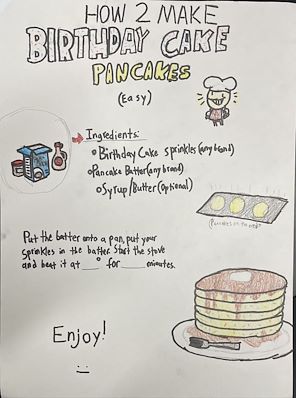 HOW 2 MAKE
BIRTHDAY CAKE
PANCAKES
(Easy)
Ingredients:
Birthday Cake sprinkles (any brand)
Pancake Batter (any brand)
Syrup/Butter (Optional)
Put the batter onto a pan, put your
sprinkles in the batter. Start the stove
and heat it at __° for ____ minutes.
Enjoy!
:)